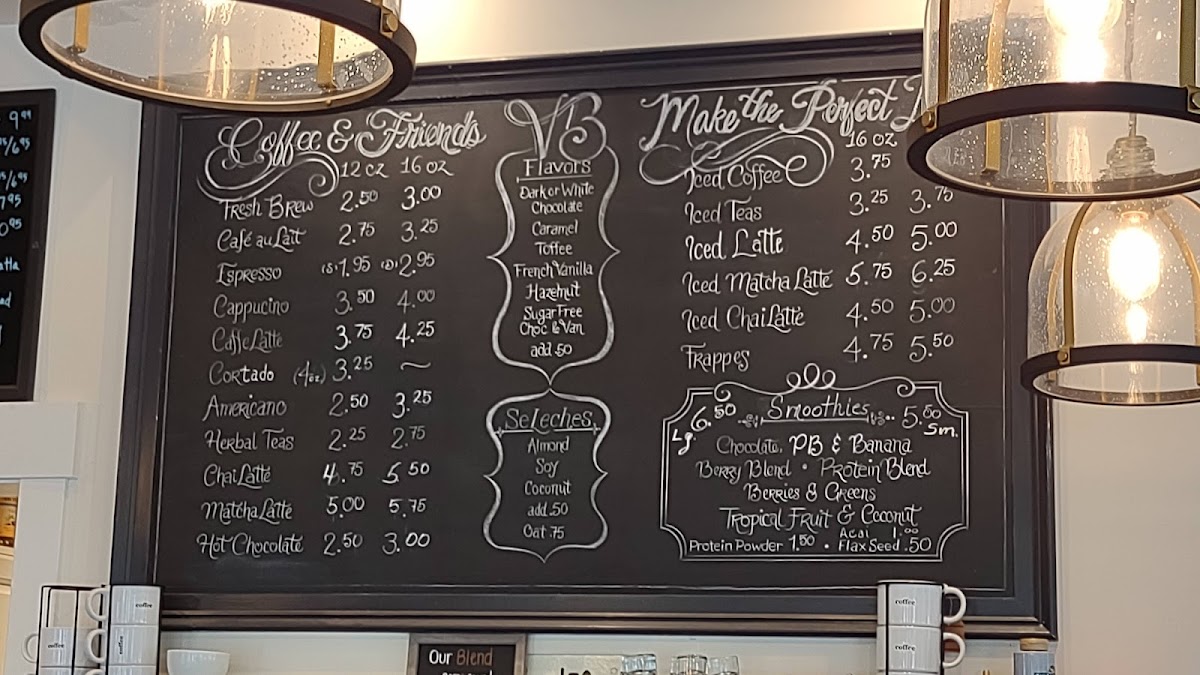 9.99
Coffee & Friends
12 oz 16 oz
Fresh Brew 2.50 3.00
Café au Lait 2.75 3.25
Espresso (S) 1.95 (D) 2.95
Cappucino 3.50 4.00
Caffe Latté 3.75 4.25
Cortado (4oz) 3.25 ~
Americano 2.50 3.25
Herbal Teas 2.25 2.75
Chai Latté 4.75 5.50
Matcha Latté 5.00 5.75
Hot Chocolate 2.50 3.00
VB
Flavors
Dark or White
Chocolate
Caramel
Toffee
French Vanilla
Hazelnut
Sugar Free
Choc & Van
add .50
SeLeches
Almond
Soy
Coconut
add .50
Oat .75
Make the Perfect
16 oz
Iced Coffee 3.75
Iced Teas 3.25 3.75
Iced Latte 4.50 5.00
Iced Matcha Latte 5.75 6.25
Iced Chai Latte 4.50 5.00
Frappes 4.75 5.50
Lg. 6.50 Smoothies 5.50 Sm.
Chocolate, PB & Banana
Berry Blend • Protein Blend
Berries & Greens
Tropical Fruit & Coconut
Acai 1.00
Protein Powder 1.50 • Flax Seed .50
coffee
coffee
coffee
coffee
coffee
Our Blend